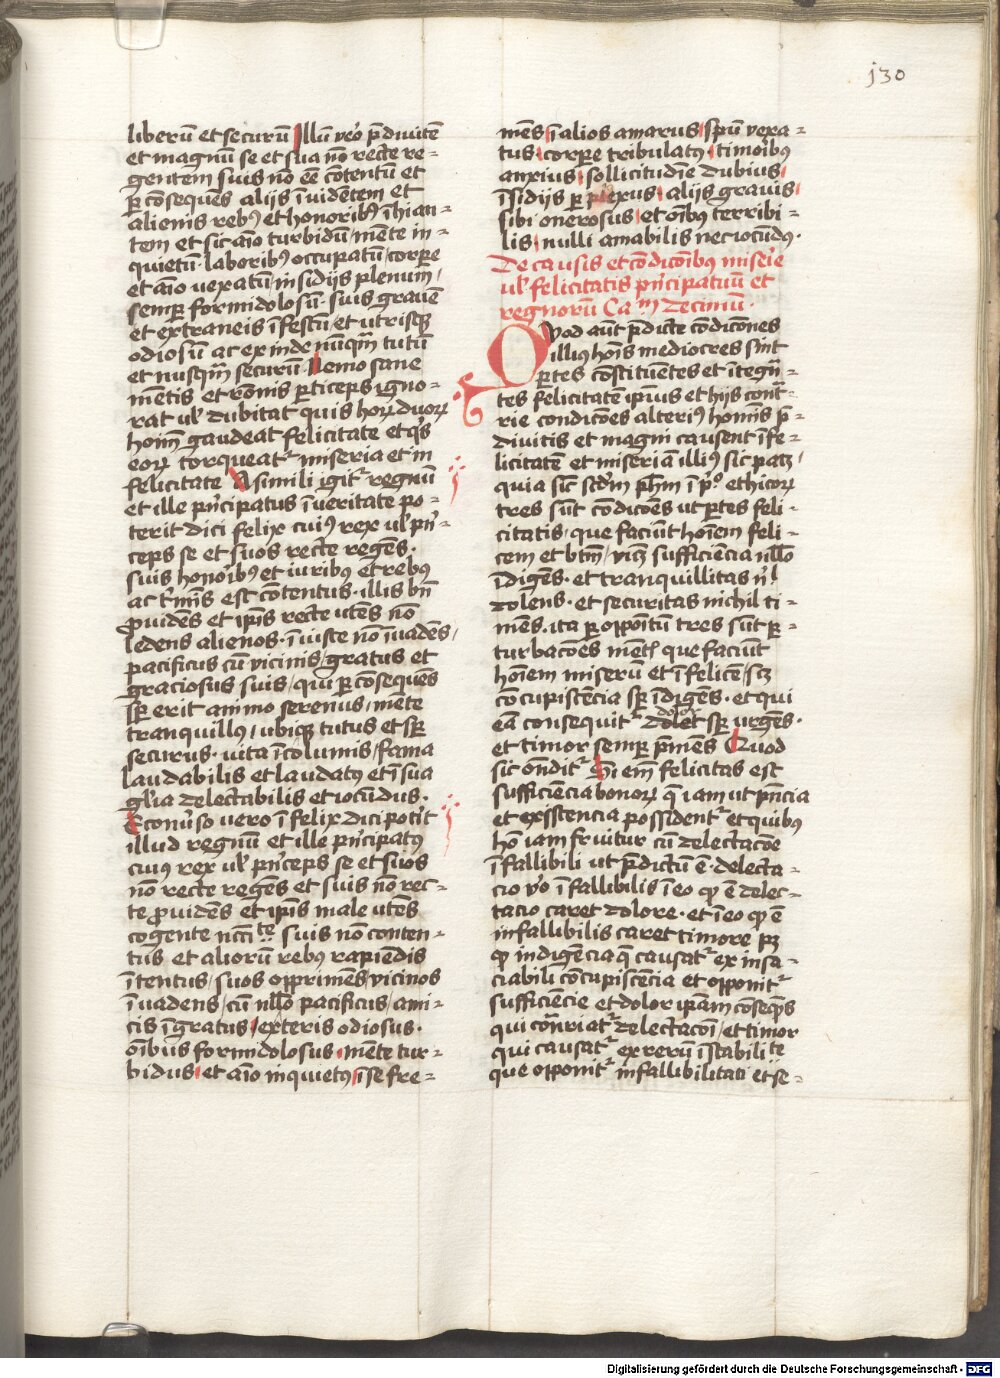 130
liberū et securū Illū ṽo p̄divitē
et magnū se et sua nō recte re=
gentem suis nō eē cōtentū et
ꝑ cōsequēs alijs īvidentem et
alienis rebꝰ et honoribꝰ īhian=
tem et sic aīo turbidū / mēte in=
quietū · laboribꝰ occupatū / corꝑe
et aīo vexatū / insidijs plenum /
semꝑ formidolosū · suis gravē
et extraneis īfestū / et utrisqꝫ
odiosū ac exinde nūqm̄ tutū
et nusqm̄ securū · Nemo sane
mētis et rōnis ꝑticeps igno=
rat ul̓ dubitat quis hoꝝ duoꝝ
hoīm gaudeat felicitate et q̓s
eoꝝ torqueat᷑ miseria et in
felicitate A simili igit᷑ regnū
et ille pn̓cipatus īveritate po=
terit dici felix cuiꝰ rex ul̓ pn̓=
ceps se et suos recte regēs ·
suis honoībꝰ et iuribꝰ et rebꝰ
ac t̓mīs est cōtentus · illis bn̄
ꝓvidēs et ip̄is recte utēs nō
ledens alienos · īiuste nō īvadēs /
pacificus cū vicinis / gratus et
graciosus suis / qui ꝑ cōsequēs
sꝑ erit animo serenus / mēte
tranquillꝰ / ubiqꝫ tutus et sꝑ
securus · vita īcolumis / fama
laudabilis et laudatꝰ et ī sua
gl̓ia delectabilis et iocūdus ·
Econv̓so vero īfelix dici pot̓it
illud regnū et ille pn̓cipatꝰ
cuiꝰ rex ul̓ pn̓ceps se et suos
nō recte regēs et suis nō rec=
te ꝓvidēs et ip̄is male utēs
cogente nc̄cite suis nō conten=
tus et aliorū rebꝰ rapiēdis
ītentus / suos opprimēs / vicinos
īvadens / cū nll̓o pacificus / ami=
cis īgratus / exteris odiosus ·
oībus formidolosus · mēte tur=
bidus · et aīo inquietꝰ · ī se fre=
mēs · ī alios amarus · sp̄u vexa=
tus · corꝑe tribulatꝰ · timoībꝰ
anxius · sollicitudīe dubius ·
īsidijs ꝑplexus · alijs gravis ·
sibi onerosus · et oībꝰ terribi=
lis · nulli amabilis nec iocūdꝰ ·
De causis et cōdicōibus misēie
ul̓ felicitatis pn̓cipatuū et
regnorū Cam Decimū ·
Quod aūt p̄dicte cōdicōnes
illiꝰ hoīs mediocres sint
ꝑtes cōstituētes et ītegn̄=
tes felicitatē ip̄ius et hijs cont̄=
rie condicōes alteriꝰ hominis p̄=
divitis et magni causent īfe=
licitatē et miseriā illiꝰ sic patꝫ /
quia sūt scd̄m ph̄m ī pͦ ethicoꝝ
tres sūt cōdicōes ut ꝑtes feli=
citatis · que faciūt hoīem feli=
cem et btm̄ / vicꝫ sufficiēcia nll̓o
īdigēs · et tranquillitas n̄l
dolens · et securitas nichil ti=
mēs. ita ꝑ oppoītum tres sūt ꝑ=
turbacōes mētꝭ que faciūt
hoīem miserū et īfelicē / scꝫ
cōcupiscēcia sꝑ īdigēs · et qui
eā consequit᷑ dolor sꝑ urgēs ·
et timor semꝑ p̄mēs Quod
sic on̄dit᷑ Si em̄ felicitas est
sufficiēcia bonoꝝ q̄ iam ut pn̄cia
et exsistencia possident᷑ et quibꝰ
hō iam fruitur cū delectacōe
īfallibili ut p̄dictū ē · delecta=
cio v̓o īfallibilis ī eo ꝙ ē delec=
tacio caret dolore · et ī eo ꝙ ē
infallibilis caret timore pꝫ
ꝙ indigēcia q̄ causat᷑ ex insa=
ciabili cōcupiscēcia et opponit᷑
sufficiēcie et dolor ip̄am cōseqēs
qui cōt̄riat᷑ delectacōi / et timor
qui causat᷑ ex rerū īstabilite
que opponit᷑ infallibilitati et se=
Digitalisierung gefördert durch die Deutsche Forschungsgemeinschaft - DFG